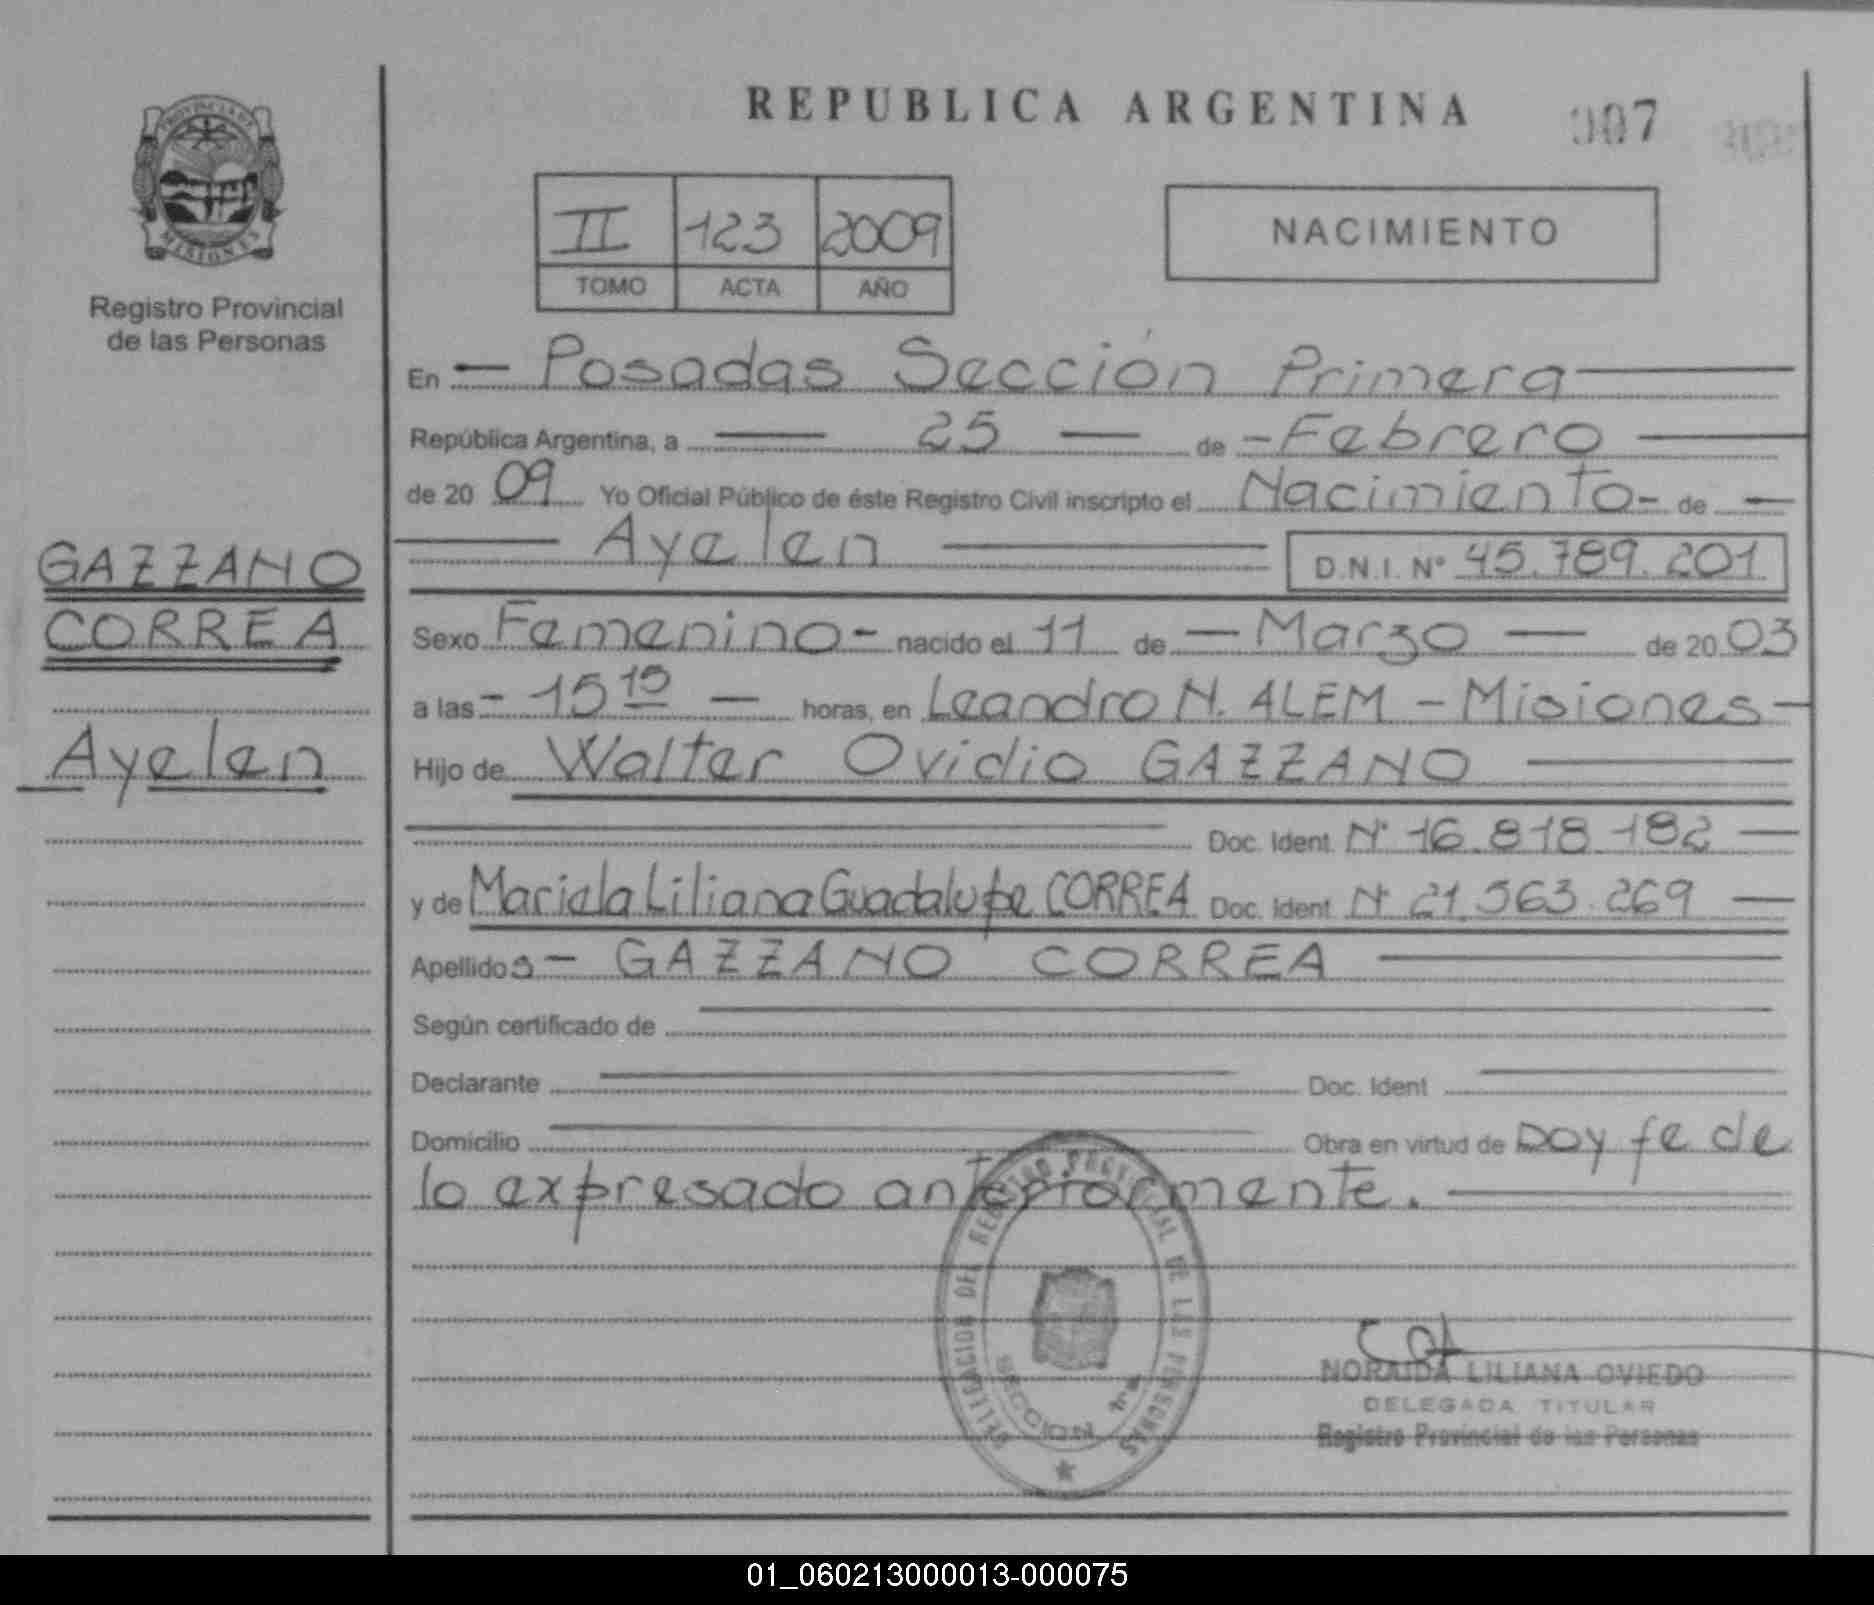 REPUBLICA ARGENTINA
007
PROVINCIA DE
MISIONES
Registro Provincial
de las Personas
II 123 2009
TOMO ACTA AÑO
NACIMIENTO
En — Posadas Sección Primera —
República Argentina, a — 25 — de - Febrero —
de 20 09 Yo Oficial Público de éste Registro Civil inscripto el Nacimiento - de —
— Ayelen — D.N.I. Nº 45.789.201
GAZZANO
CORREA
Ayelen
Sexo Femenino - nacido el 11 de — Marzo — de 20 03
a las - 15 15 — horas, en Leandro N. ALEM - Misiones -
Hijo de Walter Ovidio GAZZANO —
— Doc. Ident. Nº 16.818.182 —
y de Mariela Liliana Guadalupe CORREA Doc. Ident. Nº 21.563.269 —
Apellidos - GAZZANO CORREA —
Según certificado de —
Declarante — Doc. Ident —
Domicilio — Obra en virtud de Doy fe de
lo expresado anteriormente. —
DELEGACION DEL REGISTRO PROVINCIAL DE LAS PERSONAS
SECCION 1ra
NORAIDA LILIANA OVIEDO
DELEGADA TITULAR
Registro Provincial de las Personas
01_060213000013-000075